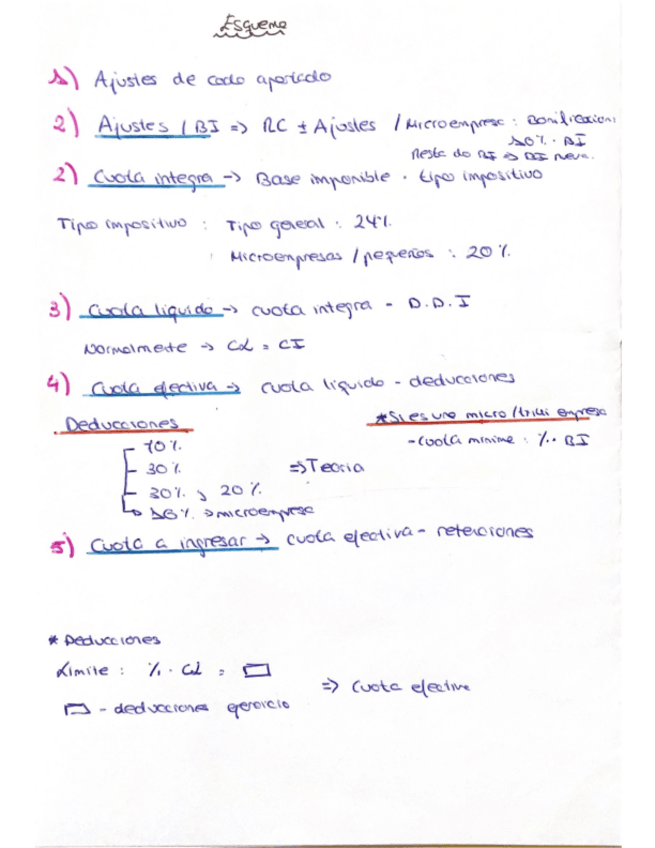 Esquema
1) Ajustes de cada apartado
2) Ajustes / BI => RC ± Ajustes / Microempresa : Bonificación
10% · BI
Resta do BI => BI nova.
2) Cuota integra -> Base imponible · tipo impositivo
Tipo impositivo : Tipo general : 24%
: Microempresas / pequeñas : 20%
3) Cuota liquida -> cuota integra - D.D.I
Normalmente -> CL = CI
4) Cuota efectiva -> cuota liquida - deducciones
Deducciones
*Si es una micro / empresa
- Cuota minima : % · BI
70%
30% => Teoria
30% 20%
microempresa
5) Cuota a ingresar -> cuota efectiva - retenciones
* Deducciones
Limite : % · CL = ▭
▭ - deducciones ejercicio => Cuota efectiva